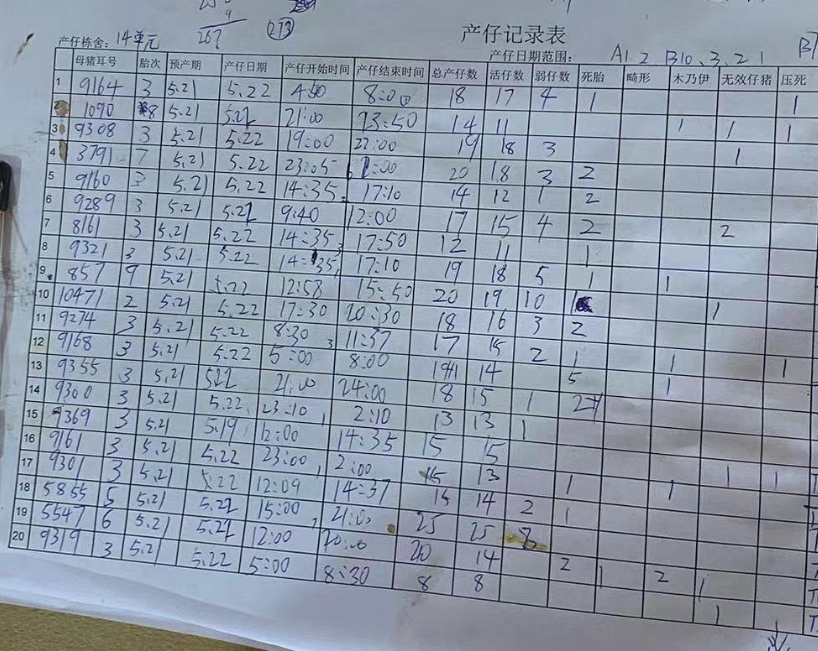 267
273
产仔记录表
产仔栋舍: 14单元 产仔日期范围: A1.2 B10、3、21 B7
母猪耳号 胎次 预产期 产仔日期 产仔开始时间 产仔结束时间 总产仔数 活仔数 弱仔数 死胎 畸形 木乃伊 无效仔猪 压死
1 9164 3 5.21 5.22 4:50 8:00 18 17 4 1 1
2 1090 8 5.21 5.22 21:00 23:50 14 11 1 1 1
3 9308 3 5.21 5.22 19:00 22:00 19 18 3 1
4 3791 7 5.21 5.22 23:05 :00 20 18 3 2
5 9160 3 5.21 5.22 14:35 17:10 14 12 1 2
6 9289 3 5.21 5.22 9:40 12:00 17 15 4 2 2
7 8161 3 5.21 5.22 14:35 17:50 12 11 1
8 9321 3 5.21 5.22 14:35 17:10 19 18 5 1 1
9 857 9 5.21 5.22 12:58 15:50 20 19 10 1
10 10471 2 5.21 5.22 17:30 20:30 18 16 3 2
11 9274 3 5.21 5.22 8:30 11:37 17 15 2 1 1 1
12 9168 3 5.21 5.22 5:00 8:00 14 5 1
13 9355 3 5.21 5.22 21:00 24:00 18 15 1 2
14 9300 3 5.21 5.22 23:10 2:10 13 13 1
15 9369 3 5.21 5.19 12:00 14:35 15 15
16 9161 3 5.21 5.22 23:00 2:00 15 13 1 1 1
17 9301 3 5.21 5.22 12:09 14:37 15 14 2 1 1
18 5865 5 5.21 5.22 15:00 21:00 25 25 8
19 5547 6 5.21 5.22 12:00 20:00 20 14 2 1 2 1
20 9319 3 5.21 5.22 5:00 8:30 8 8 1